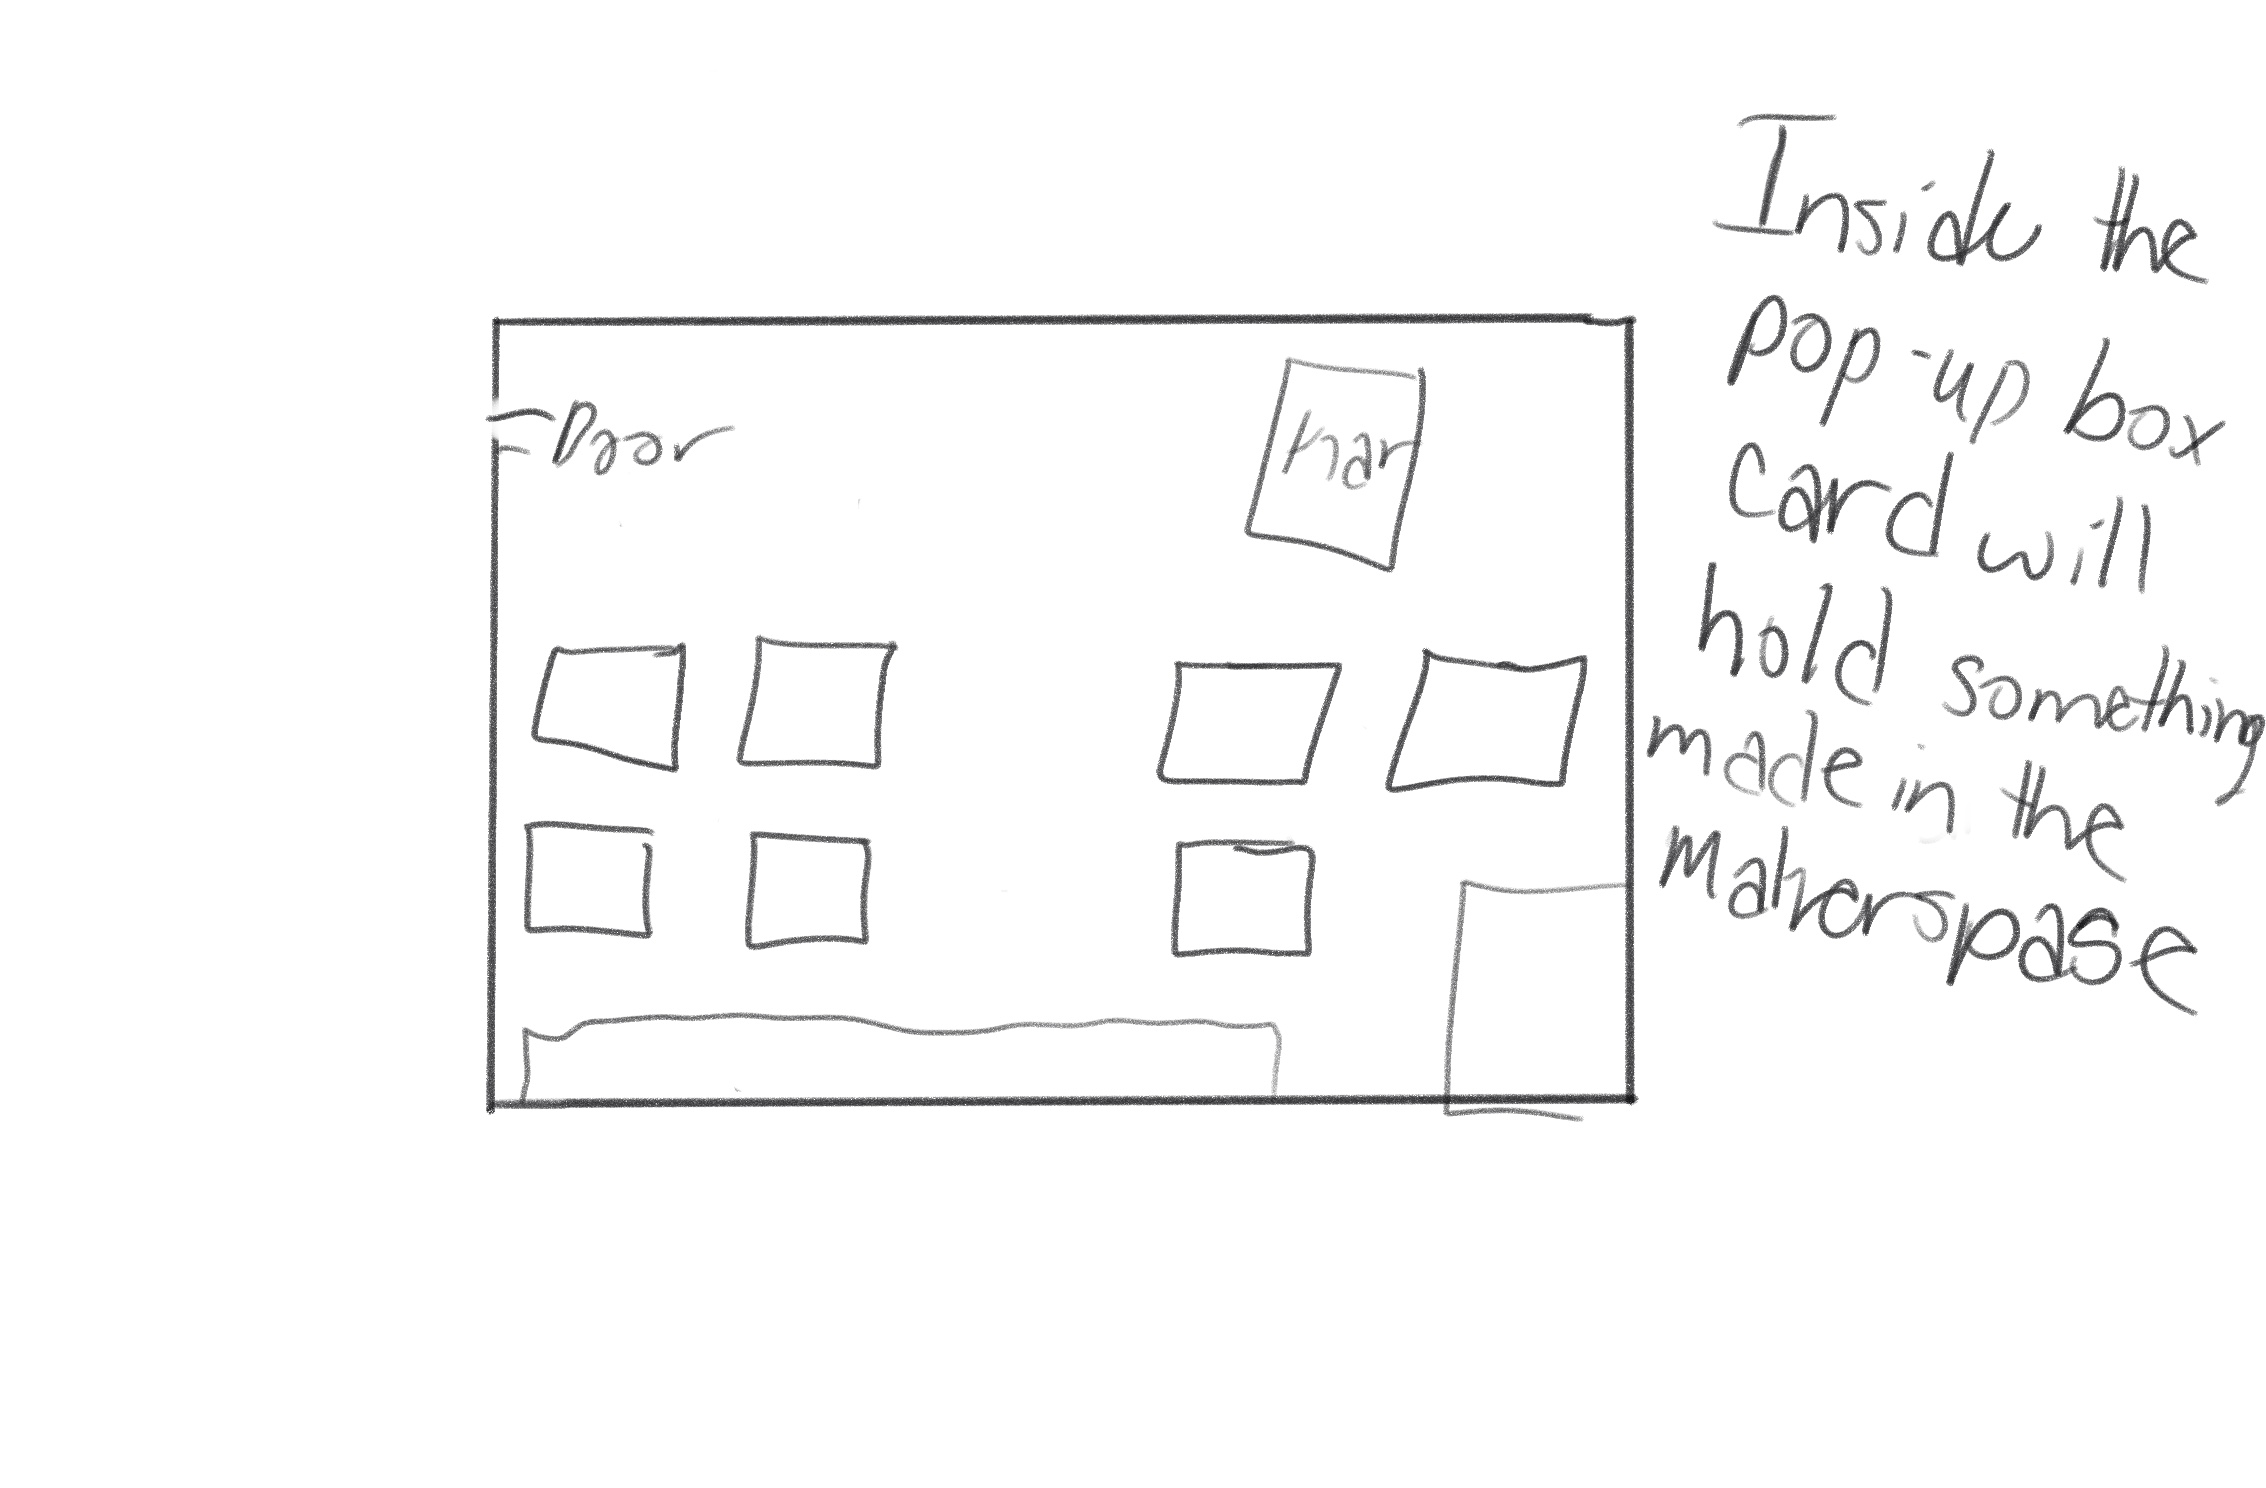 Inside the
pop-up box
card will
hold something
made in the
Makerspase
Door